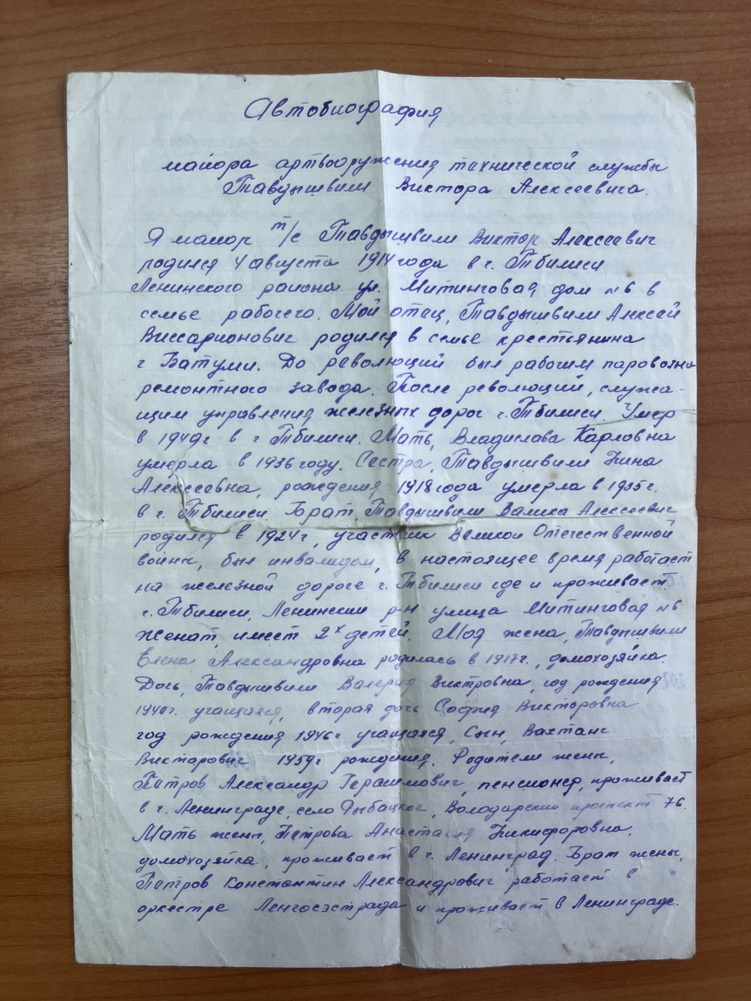 Автобиография
майора артвооружения технической службы
Тавдышвили Виктора Алексеевича.
Я майор т/с Тавдышвили Виктор Алексеевич
родился 4 августа 1914 года в г. Тбилиси
Ленинского района ул. Митинговая дом №6 в
семье рабочего. Мой отец, Тавдышвили Алексей
Виссарионович родился в семье крестьянина
г Батуми. До революций был рабочим паровозно
ремонтного завода. После революций, служа-
щим управления железных дорог г. Тбилиси. Умер
в 1940г в г Тбилиси. Мать, Владислова Карловна
умерла в 1936 году. Сестра, Тавдышвили Нина
Алексеевна, рождения 1918 года умерла в 1935г.
в г. Тбилиси. Брат, Тавдышвили Алексеевич
родился в 1924г, участник Великой Отечественной
войны, был инвалидом, в настоящее время работает
на железной дороге г. Тбилиси где и проживает
г. Тбилиси, Ленинский р-н улица Митинговая №6
Женат, имеет 2х детей. Моя жена, Тавдышвили
Елена Александровна родилась в 1917г., домохозяйка.
Дочь, Тавдышвили Валерия Виктровна, год рождения
1940г. учащаяся, вторая дочь София Викторовна
год рождения 1946г учащаяся, Сын, Вахтанг
Викторович 1959г рождения. Родители жены,
Петров Александр Герасимович, пенсионер, проживает
в г. Ленинграде, село Рыбацкое, Володарский проспект 76.
Мать жены, Петрова Анастасия Никифоровна,
домохозяйка, проживает в г. Ленинград. Брат жены,
Петров Константин Александрович работает в
оркестре Ленгосэстрада и проживает в Ленинграде.